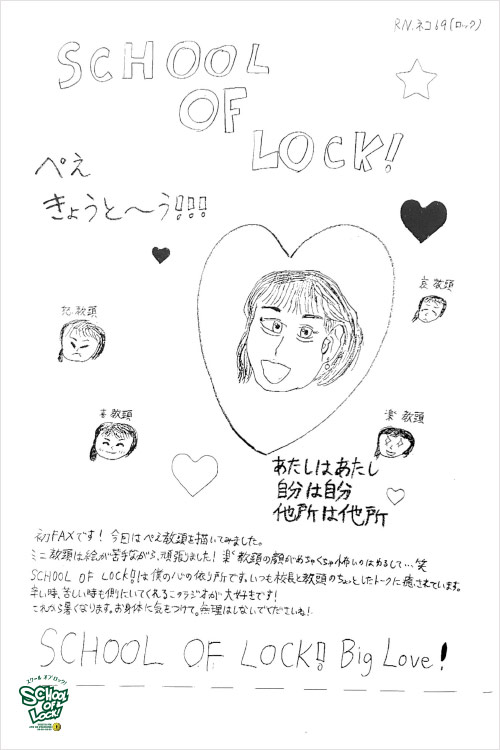 R.N.ネコ69(ロック)
SCHOOL
OF
LOCK!
ぺえ
きょうと〜う!!!
哀教頭
怒教頭
喜教頭
楽教頭
あたしはあたし
自分は自分
他所は他所
初FAXです! 今日はぺえ教頭を描いてみました。
ミニ教頭は絵が苦手ながら、頑張りました! 楽教頭の顔がめちゃくちゃ怖いのはゆるして…笑
SCHOOL OF LOCK!は僕の心の依り所です。いつも校長と教頭のちょっとしたトークに癒されています。
辛い時、苦しい時も側にいてくれるこのラジオが大好きです!
これから暑くなります。お身体に気をつけて。無理はしないでくださいね!
SCHOOL OF LOCK! Big Love!
スクール オブ ロック!
SCHOOL
OF
LOCK!